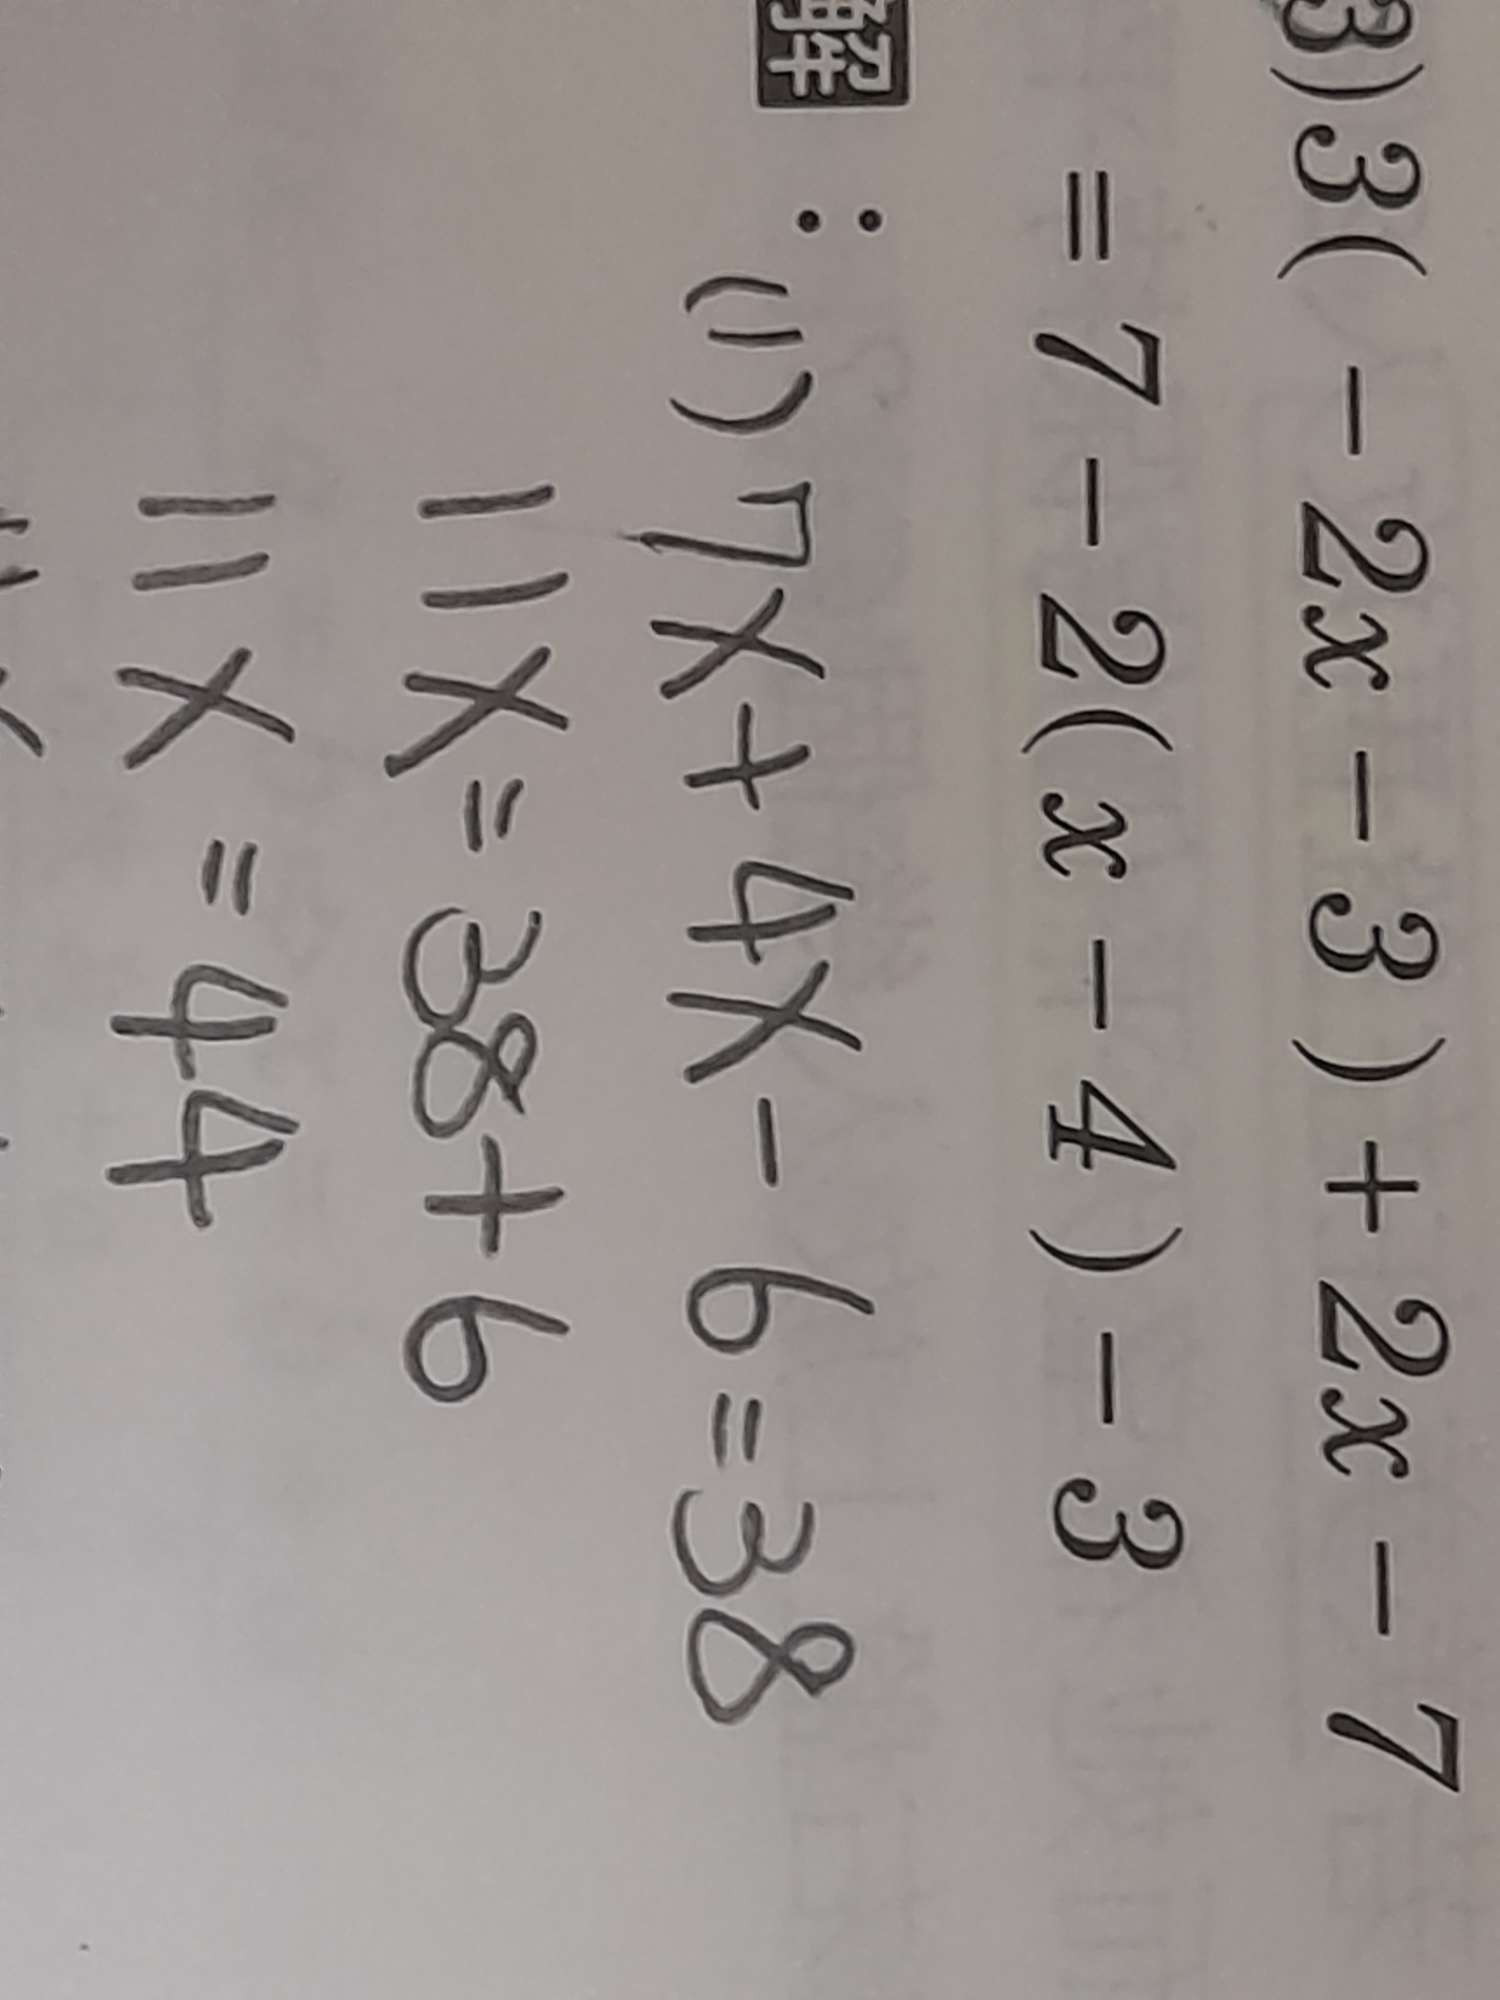 3)3(-2x-3)+2x-7
=7-2(x-4)-3
解:(1)7x+4x-6=38
11x=38+6
11x=44